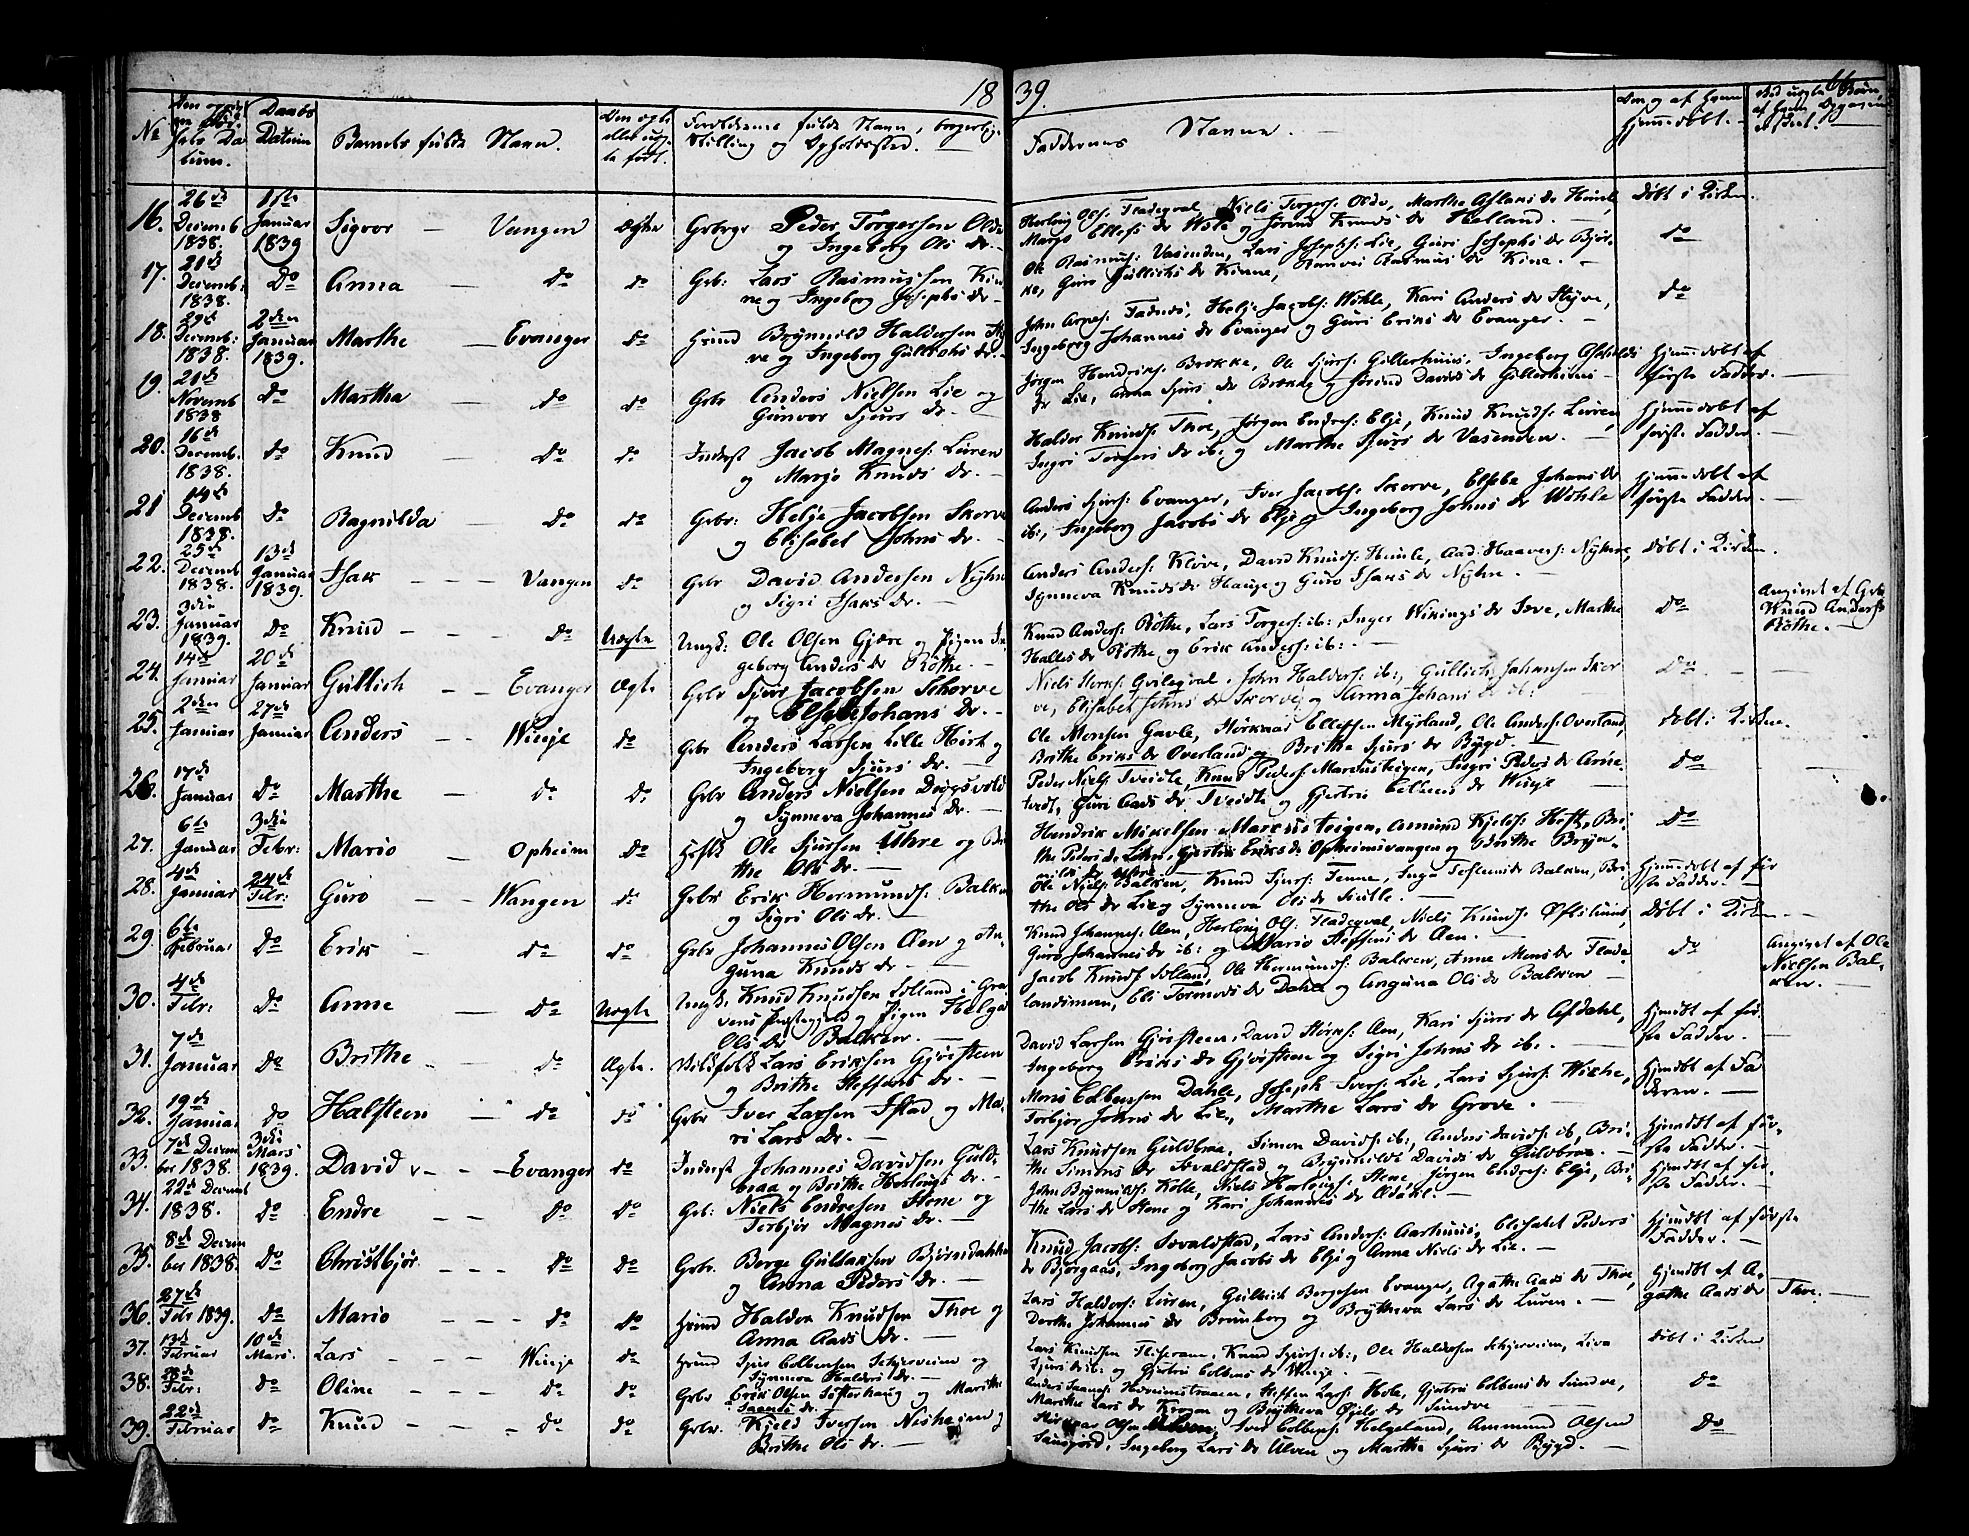 18 39.
66
No
Daabs
Datum
Barnets fulde Navn.
Forældrenes fulde Navn, borgerlige
Stilling og Opholdssted.
Faddernes Navne.
16. 26de Decemb 1838. 1ste Januar 1839 Sigvor — Vangen Ægte Grbr Peder Torgersen Olde
og Ingeborg Ols dr. —
Herlong Ols: Fladeqval, Niels Torgers: Olde, Marthe Aslaks dr Himle,
Døbt i Kirken.
17. 21de Decemb: 1838. Do Anna — Do do Grb: Lars Rasmussen Kin
ne og Ingeborg Josephs dr —
Ole Rasmus: Vasenden, Lars Josephs: Lie, Guri Josephs dr Bjør-
ke, Guri Gullichs dr Kinne, Ranvei Rasmus dr Kine. —
do
18. 29de Decemb: 1838. 2den Januar 1839. Marthe — Evanger do Hmd Brynnild Haldorsen
ve og Ingeborg Gullichs dr. —
John Arnes: Fadnes, Helje Jacobs: Wöhle, Kari Anders dr Styve,
Ingeborg Johannes dr Evanger og Guri Eriks dr Evanger. —
do
19. 21de Novemb 1838 do Martha — do do Grbr Anders Nielsen Lie og
Gunvor Sjurs dr. —
Jørgen Hendriks: Brække, Ole Sjurs: Gillerhuus, Ingeborg
dr Lie, Anna Sjurs dr Brække og Jorend Davids dr Gillerhuus —
Hjemmedøbt af
første Fadder. —
20. 16de Decemb. 1838. do Knud — do do Inderst Jacob Magnes: Lüren
og Marjo Knuds dr. —
Haldor Knuds: Thoe, Jørgen Endres: Elje, Knud Knuds: Lüren,
Ingri Torgers dr ib: og Marthe Sjurs dr Vasenden. —
Hjemmedøbt af
første Fadder. —
21 14de Decemb 1838. do Ragnilda — do do Grbr: Helje Jacobsen Skorve
og Elisabet Johns dr. —
Anders Sjurs: Evanger, Iver Jacobs: Skorve, Elsebe Johans dr
ib:, Ingeborg Jacobs dr Elje og Ingeborg Johns dr Wöhle
Hjemmedøbt af
første Fadder. —
22. 25de Decemb 1838. 13de Januar 1839. Isak — Vangen do Grbr David Andersen Nyhre
og Sigri Isaks dr. —
Anders Anders: Kløve, David Knuds: Himle, Aad: Haavers: Nyhre,
Synneva Knuds dr Hauge og Guro Isaks dr Nyhre. —
Døbt i Kirken.
23. 3die Januar 1839. do Knud — do Uægte Ungk: Ole Olsen Gjære og Pigen In
geborg Anders dr Röthe. —
Knud Anders: Röthe, Lars Torgers: ib:, Inger Wikings dr Seve, Marthe
Halles dr Röthe og Erik Anders: ib: —
Do
Angivet af Grbr
Knud Anders:
Röthe. —
24. 14de Januar 20de Januar Gullich — Evanger Ægte Grbr Sjurs Jacobsen Schorve
og Elsebe Johans dr. —
Niels Gvileqval, John Haldors: ib:, Gullich Johansen Skor
ve, Elisabet Johns dr Skorve, og Anna Johans dr ib: —
Do —
25. 2den Januar 27de Januar Anders — Winje do Grbr Anders Larsen Lille Hirt og
Ingeborg Sjurs dr. —
Ole Monsen Gavle, Störknar Ellefsen Myrland, Ole Anders: Overland,
Brithe Eriks dr Overland og Brithe Sjurs dr Bygd —
Døbt i Kirken
26. 17de Januar do Marthe — do. do. Grbr Anders Nielsen Døgsvold
og Synneva Johannes dr. —
Peder Niels: Tveidte, Knud Peders: Marcusteigen, Ingri Peders dr Arne-
tvedt, Guri Aads dr Tveidte og Gjertrü Colbens dr Winje
do —
27. 6te Januar 3die Febr: Mario — Opheim do Ole Sjursen Uhre og Bri
the Ols dr. —
Hendrik Mikelsen Marcusteigen, Amund Kjels: Heft, Bri-
the Peders dr Lihn, Gjertrü Eriks dr Opheimsvangen og Brithe Bryn-
nilds dr
do
28. 4de Januar 24de Febr: Guro — Wangen do Grbr Erik Hermunds: Balken
og Sigri Ols dr. —
Ole Niels: Balken, Knud Sjurs: Tenne, Inga Torsteins dr Balken, Bri
the Ols dr Lie og Synneva Ols dr Skutle. —
Hjemmedøbt af før
ste Fadder. —
29. 6te Februar Do Erik — do do Grbr Johannes Olsen Aen og An-
guna Knuds dr —
Knud Johannes: Aen, Herlong Ols: Fladeqval, Niels Knuds: Øfsthuus,
Guro Johannes dr ib: og Mario Steffens dr Aen. —
Døbt i Kirken —
30. 4de Febr: Do Anne — Do Uægte Ungk: Knud Knudsen Solland i Gra
vens Præstegjeld og Pigen Helga
Ols dr Balken. —
Jacob Knuds: Solland, Ole Hermunds: Balken, Anne Mons dr Flade
landsmoen, Eli Tormods dr Dahle og Anguna Ols dr Balken —
do
Angivet af Ole
Nielsen Bal-
ken. —
31. 7de Januar Do Brithe — do Ægte. Lars Eriksen Gjersteen
og Brithe Steffens dr. —
David Larsen Gjersteen, David Störks: Aen, Kari Sjurs dr Afdahl,
Ingeborg Eriks dr Gjersteen og Sigri Johns dr ib: —
Hjemdbt af før
ste Fadder. —
32. 19de Januar do Halsteen — do do Grbr Iver Larsen Istad og Ma-
ri Lars dr. —
Mons Colbensen Dahle, Joseph Ivers: Lie, Lars Sjurs: Wiche,
Torbjør Johns dr Lie, Marthe Lars dr Grove. —
Hjemdbt af Fa
deren. —
33. 7de Decem ber 1838. 3die Mars 1839. David — Evanger do Inderst Johannes Davidsen Guld-
braa og Brithe Herlongs dr. —
Lars Knudsen Guldbraa, Simon Davids: ib:, Anders Davids: ib, Bri-
the Simons dr Sevaldstad og Brynnilde Davids dr Guldbraa. —
Hjemdbt af før-
ste Fadder. —
34. 22de Decemb 1838. do Endre — Do Do Grb: Niels Endresen Hene og
Torbjør Magnes dr. —
John Brynnilds: Kolle, Niels Herlougs: Hene, Jørgen Endres: Elje, Bri-
the Lars dr Hene og Kari Johannes dr Ødahl. —
Hjemdbt af før-
ste Fadder. —
35. 8de Decem ber 1838. Do Christbjør. — Do Do Grbr. Berge Gullaksen Bjørndahlen
og Anna Peders dr. —
Knud Jacobs: Sevaldstad, Lars Anders: Aarhuus, Elisabet Peders
dr Bjørgaas, Ingeborg Jacobs dr Elje og Anne Niels dr Lie. —
Hjemdbt af første
Fadder. —
36. 27de Febr 1839. Do Mario — do do Hmd Haldor Knudsen Thoe og
Anna Aads dr. —
Lars Haldors: Lüren, Gullich Bergesen Evanger, Agathe Aads dr Thoe,
Dorthe Johannes dr Brunborg og Brytheva Lars dr Lüren. —
Hjemdbt af A-
gathe Aads dr Thoe. —
37. 13de Februar 10de Mars. Lars — Winje do Hmd Sjur Colbensen Schjerveim og
Synneva Haldors dr. —
Lars Knudsen Flisram, Knud Sjurs: ib:, Ole Haldorsen Schjerveim, Liva
Sjurs dr ib: og Gjertrü Colbens dr Winje. —
Døbt i Kirken
38. Febr: Do Oline — do do Grbr Erik Olsen Tösterhaug og Marithe
Saends dr. —
Steffen Lars: Hole, Gjertrü Colbens dr Sundve,
Marithe Lars dr Krogen og Brytheva Øjels dr Sundve —
Do
39. 22de Februar Do Knud — Do Do Grbr. Kjeld Iversen Nesheim og
Brithe Ols dr. —
Störkar Olsen Ulven, Iver Colbens: Helgeland, Ammund Olsen
Saugjord, Ingeborg Lars dr Ulven og Marthe Sjurs dr Bygd. —
Do